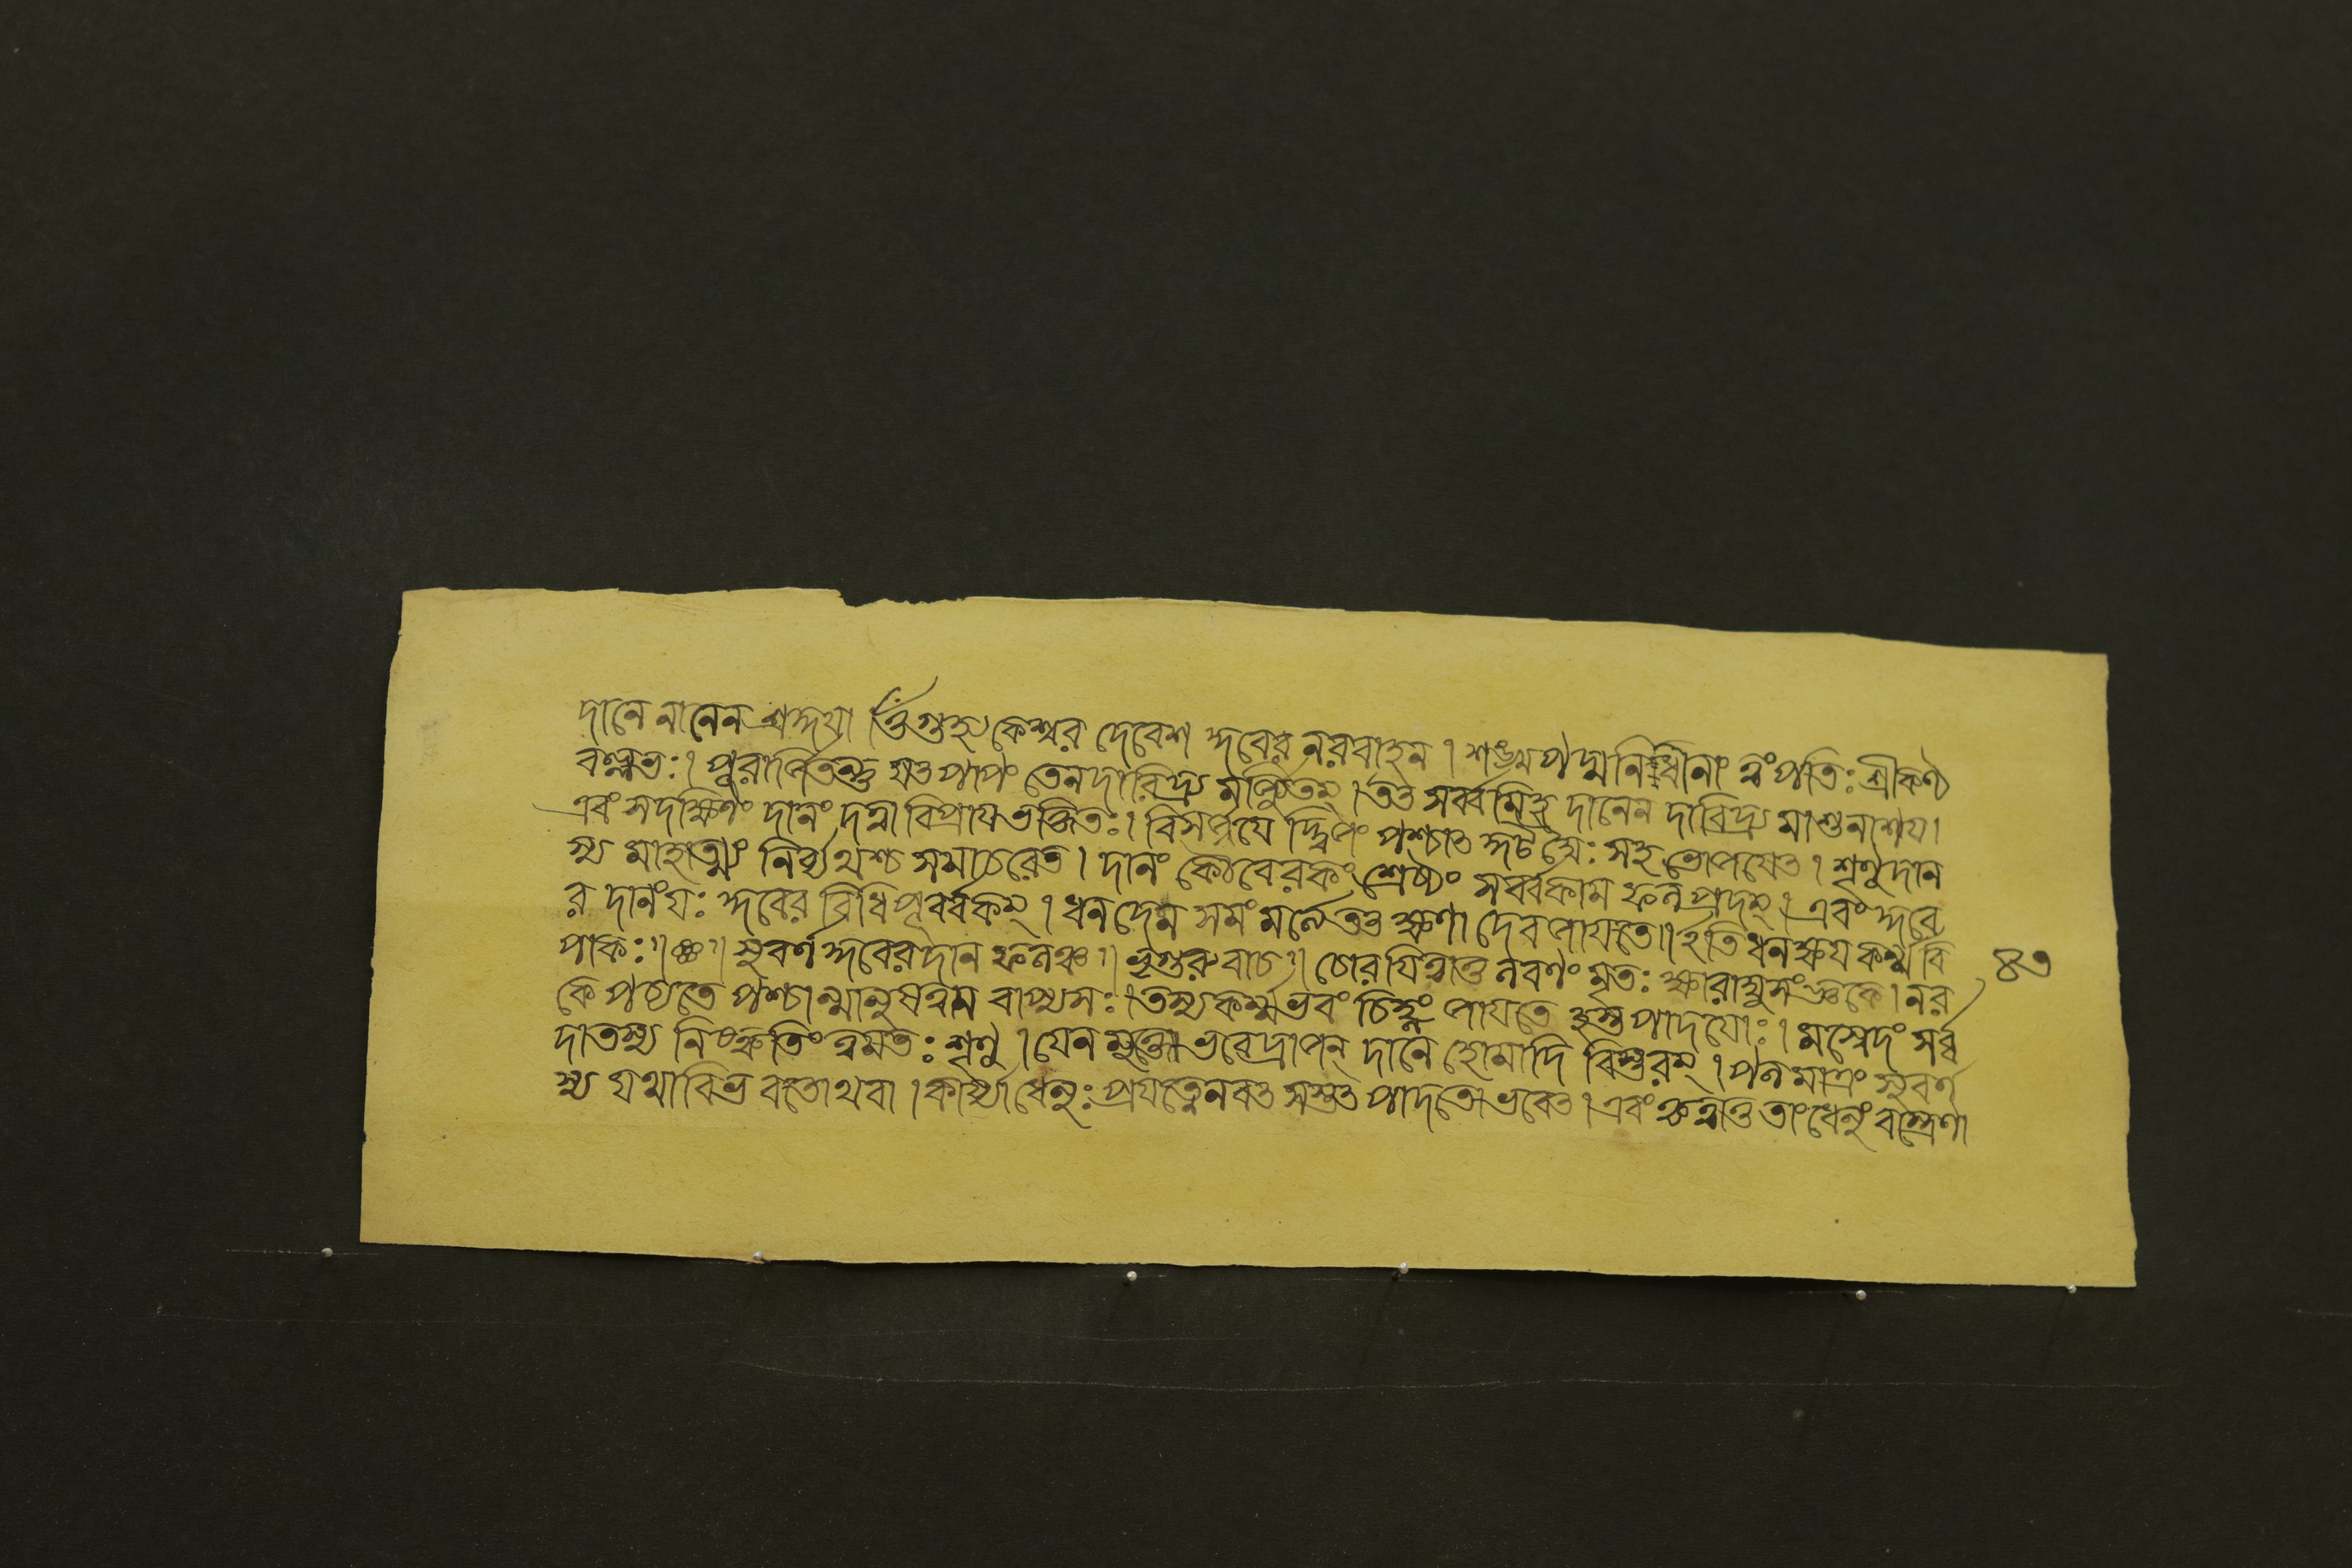 দানে নানেন শ্রদ্দয়া ওঁ গুহ্যকেশ্বর দেবেশ কুবের নরবাহন । শঙ্খপদ্মনিধীনাং ত্বংপতিঃ শ্রীকণ্ঠ
বল্লভঃ । পুরার্জিতন্তু যৎপাপং তেনদারিদ্র্য মর্জ্জিতম্ । তৎ সর্ব্বমিহ দানেন দারিদ্র্য মাশু নাশয় ।
এবং সদক্ষিণং দানং দত্ত্বা বিপ্রায় ভক্তিতঃ । বিসর্জ্জয়ে দ্দ্বিজং পশ্চাৎ সহ ভোজয়েৎ । শৃণুদান
স্য মাহাত্ম্যং নির্ব্যথশ্চ সমাচরেত । দানং কৌবেরকং শ্রেষ্ঠং সর্ব্বকাম ফলপ্রদম্ । এবং কুবে
র দানংযঃ কুবের বিধিপূর্ব্বকম্ । ধনদেন সমং মর্ত্ত্যে তৎ ক্ষণা দেব জায়তে ॥ ইতি ধনক্ষয়কর্ম্মবি
পাকঃ ॥ ❀ ॥ সুবর্ণ কুবেরদান ফলঞ্চ ॥ ভৃগুরুবাচ ॥ চোরয়িত্বাতু লবণং মৃতঃ ক্ষারাম্বুসংজ্ঞকে । নর ৪৩
কে পচ্যতে পশ্চান্মানুষত্বম বাপ্যসঃ । তস্যকর্ম্মভবং চিহ্নং জায়তে হস্তপাদয়োঃ । মস্বেদং সর্ব্ব
দাতস্য নিষ্কৃতিং ত্বমতঃ শৃণু । যেন মুক্তো ভবেদ্রাজন্ দানে হোমাদি বিস্তরম্ । পলমাত্রং সুবর্ণ
স্য যথাবিভ বতোথবা । কার্য্যা ধেনুঃ প্রযত্নেনবৎ সস্তৎ পাদতোভবেৎ । এবং কৃত্বাতু তাংধেনুং বস্ত্রেণা